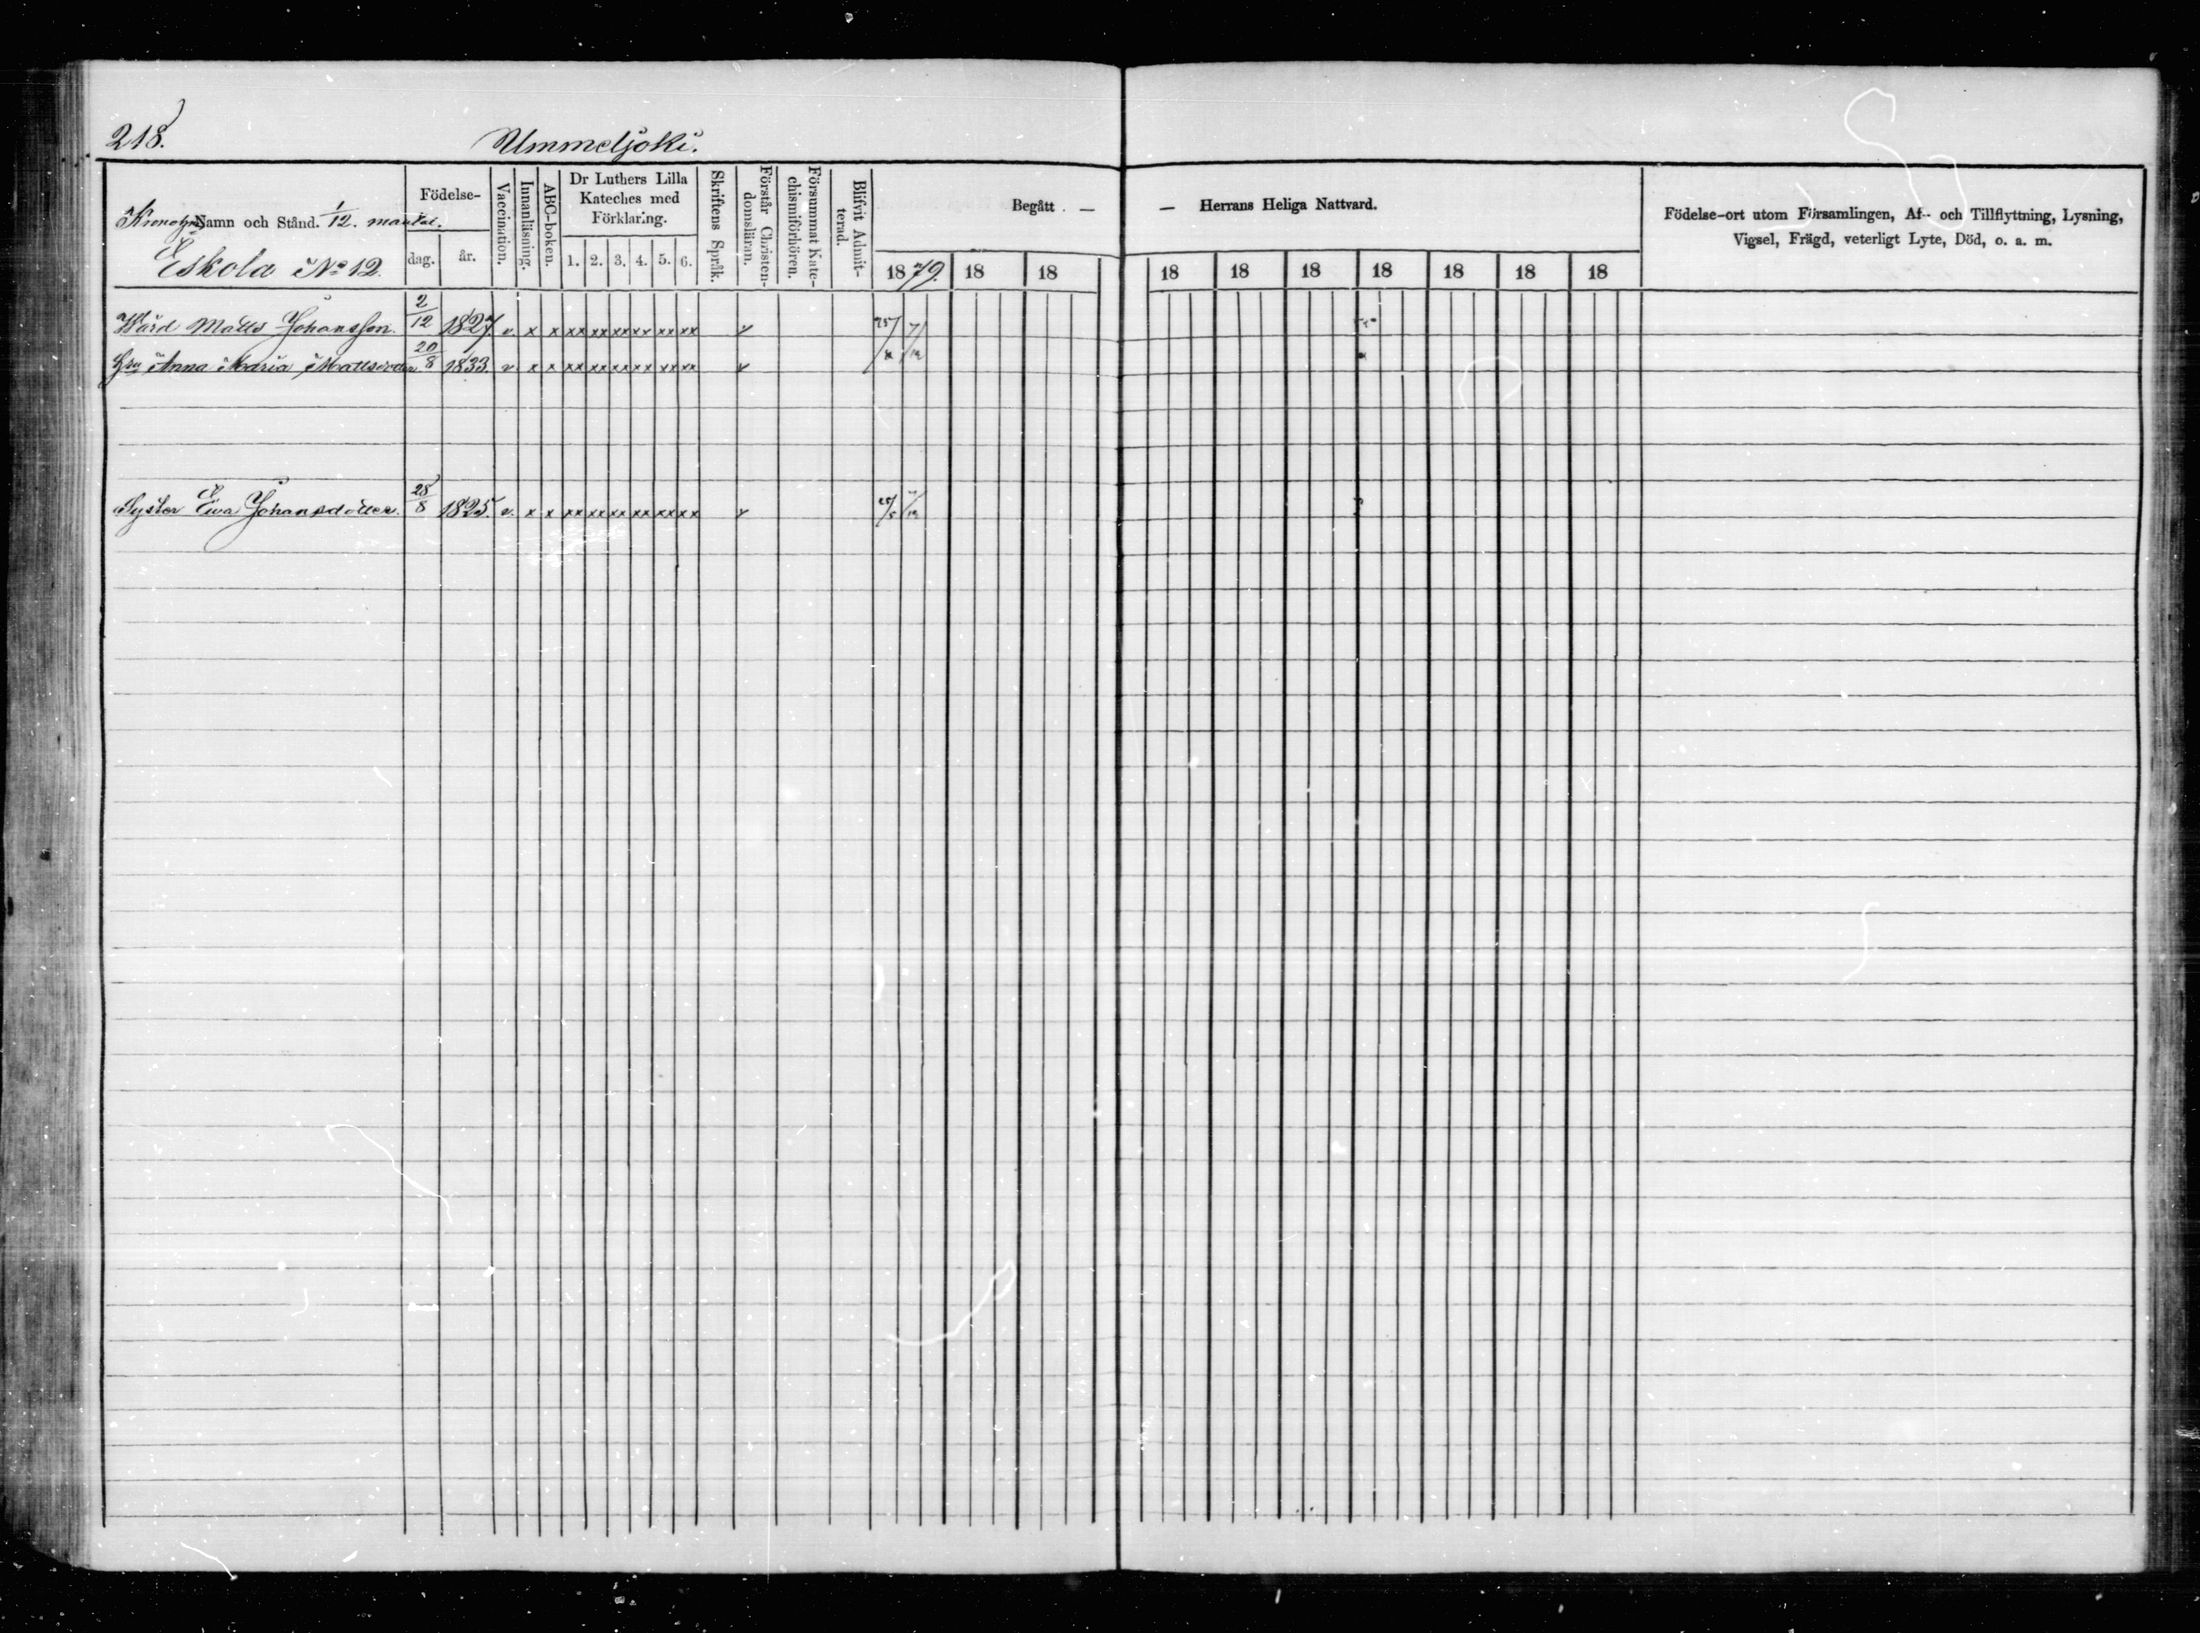 218.
Ummeljoki.
Namn och Stånd. 1/12. mantal.
Eskola No 12.
Födelse-
dag. år.
Vaccination.
Innanläsning.
ABC-boken.
Dr Luthers Lilla
Kateches med
Förklaring.
1. 2. 3. 4. 5. 6.
Skriftens Språk.
Förstår Christen-
domsläran.
Försummat Kate-
chismiförhören.
Blifvit Admit-
terad.
Begått . —
1879. 18 18
— Herrans Heliga Nattvard.
18 18 18 18 18 18 18
Födelse-ort utom Församlingen, Af- och Tillflyttning, Lysning,
Vigsel, Frägd, veterligt Lyte, Död, o. a. m.
Wärd Matts Johansson. 2/12 1827. v. x x xx xx xx xx xx xx v
Hru Anna Maria Mattsdotter 20/8 1833. v. x x xx xx xx xx xx xx v
Syster Ewa Johansdotter. 28/8 1825. v. x x xx xx xx xx xx xx v